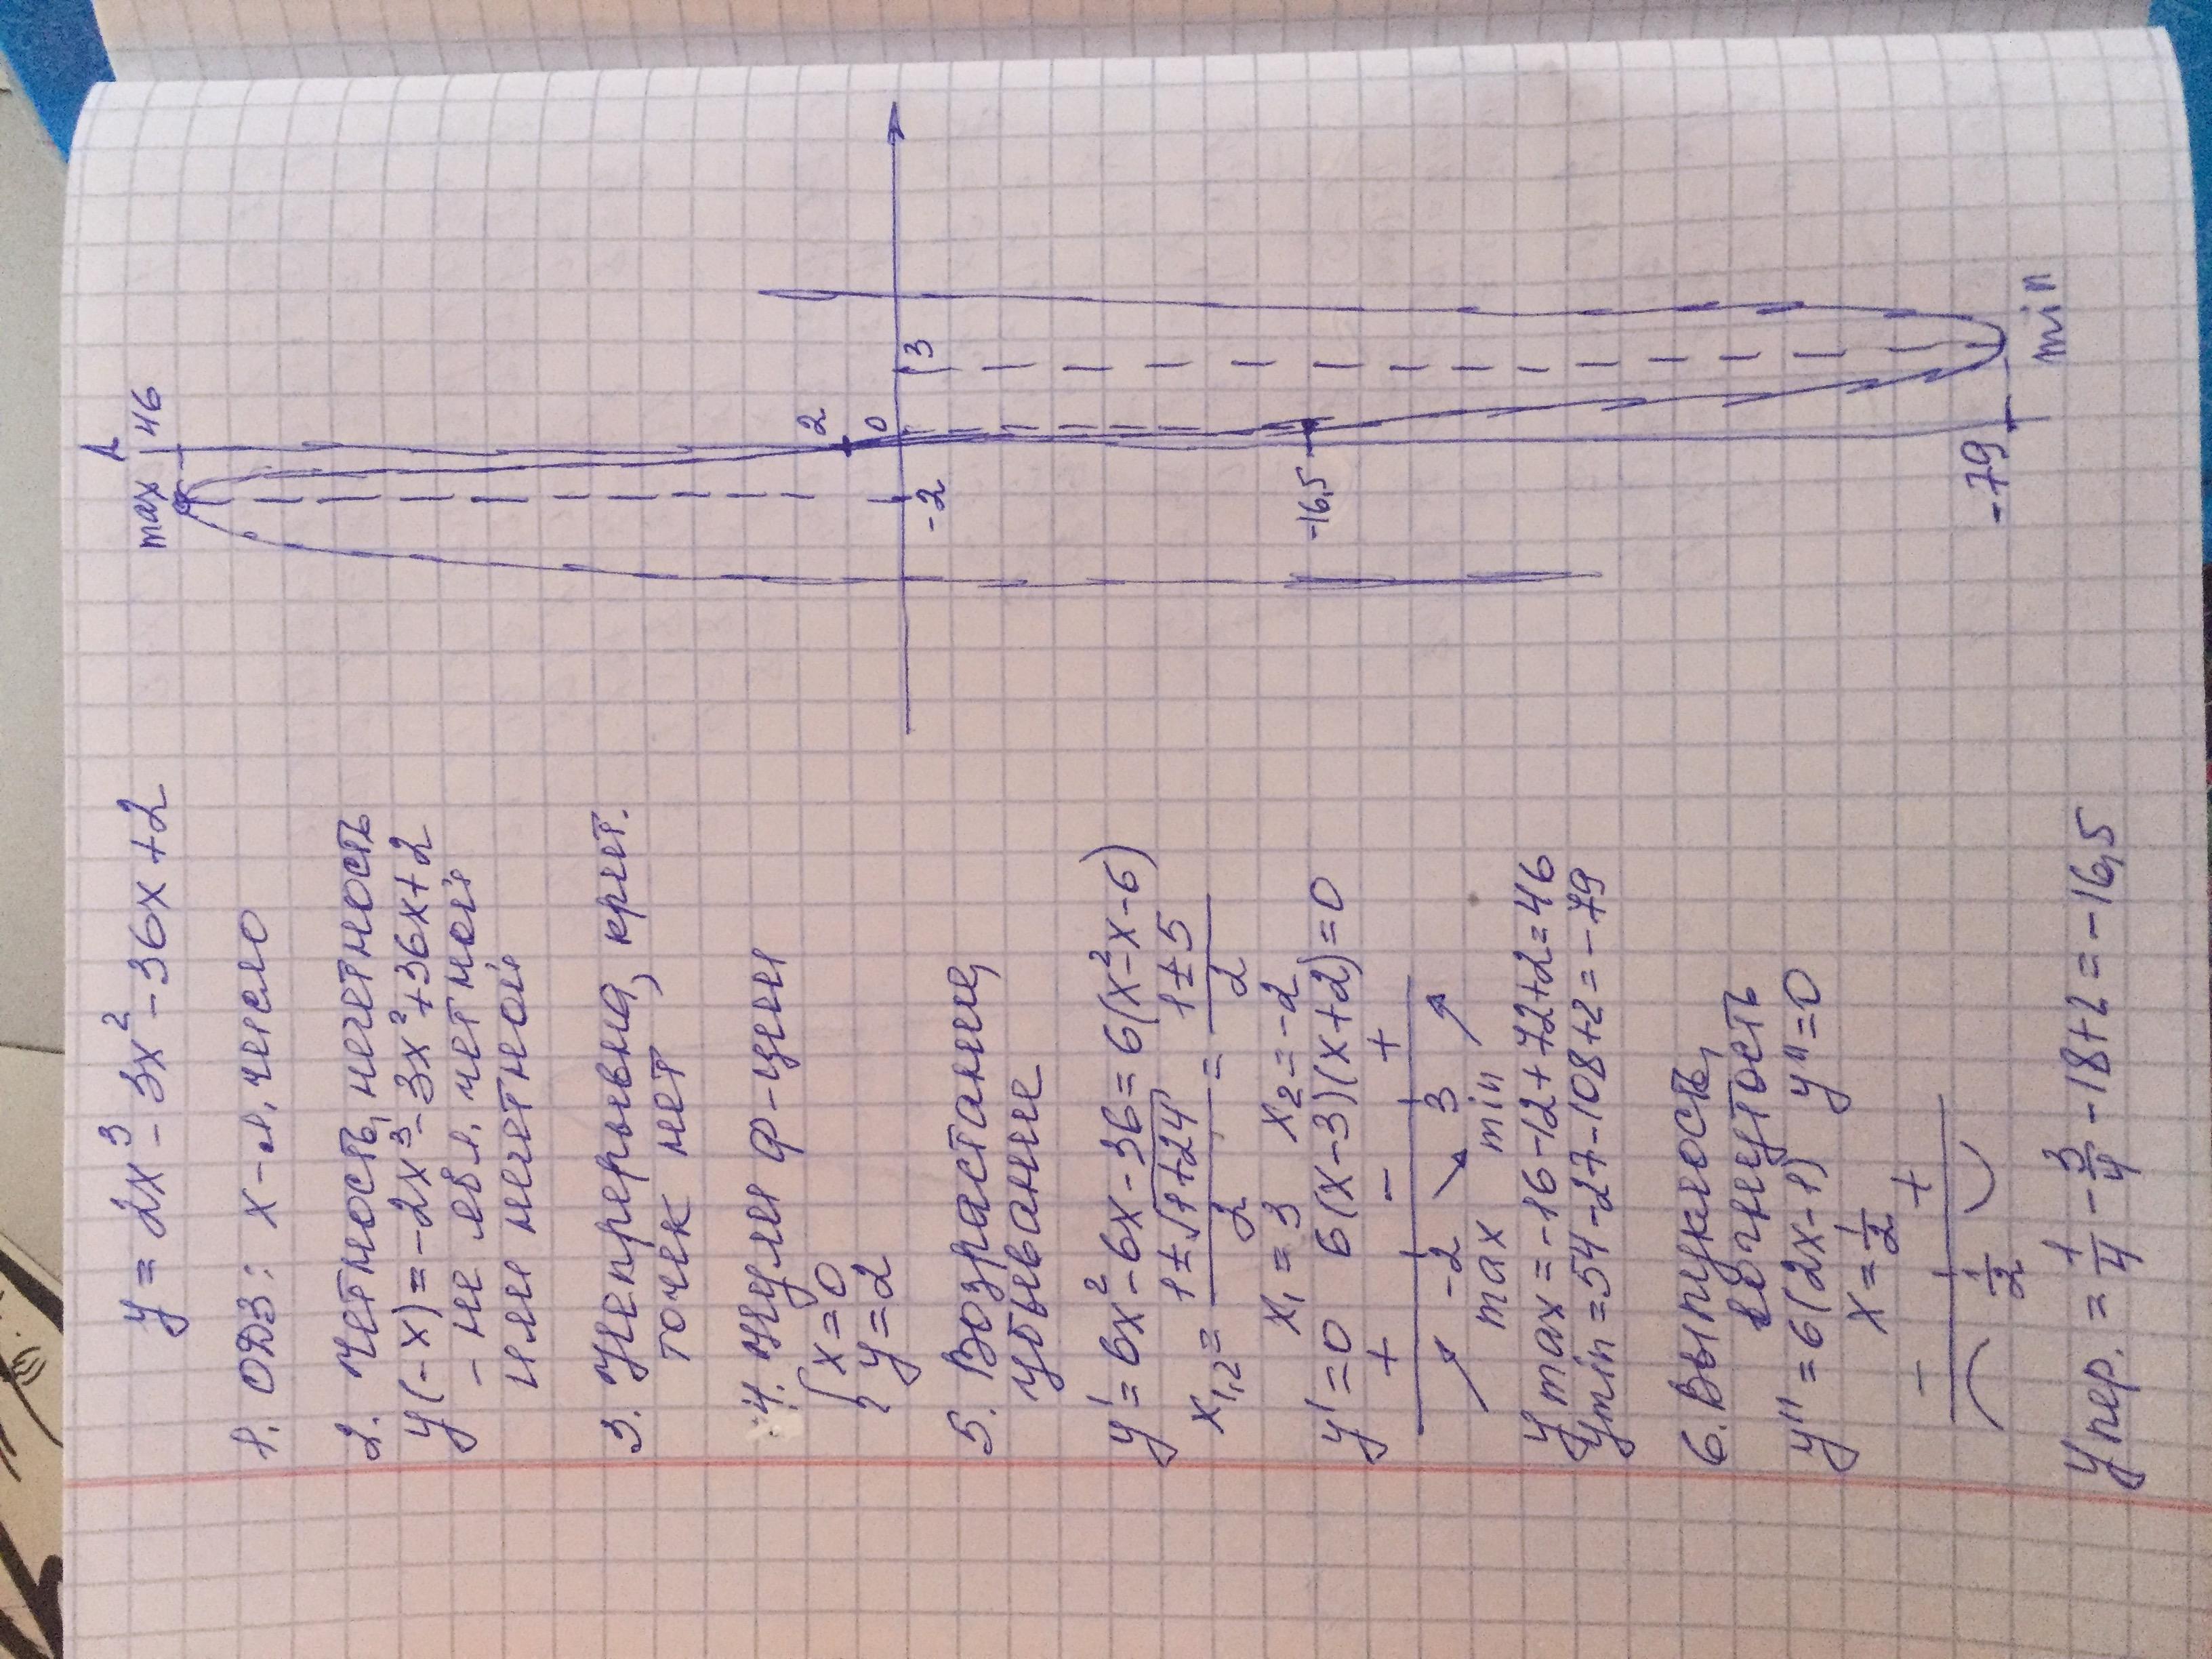 y = 2x³ - 3x² - 36x + 2
1. ОДЗ: x - л. число
2. Четность, нечетность
y(-x) = -2x³ - 3x² + 36x + 2
- не явл. четной
или нечетной
3. Непрерывна, крит.
точек нет
4. Нули ф-ции
{ x = 0
y = 2
5. Возрастание,
убывание
y' = 6x² - 6x - 36 = 6(x² - x - 6)
x₁,₂ = (1 ± √(1+24))/2 = (1 ± 5)/2
x₁ = 3 x₂ = -2
y' = 0 6(x-3)(x+2) = 0
+ - +
-2 3
↗ ↘ ↗
max min
y max = -16 - 12 + 72 + 2 = 46
y min = 54 - 27 - 108 + 2 = -79
6. Выпуклость,
вогнутость
y'' = 6(2x-1) y'' = 0
x = 1/2
- +
1/2
y пер. = 1/4 - 3/4 - 18 + 2 = -16,5
max 46
2
0
-2
3
-16,5
-79
min